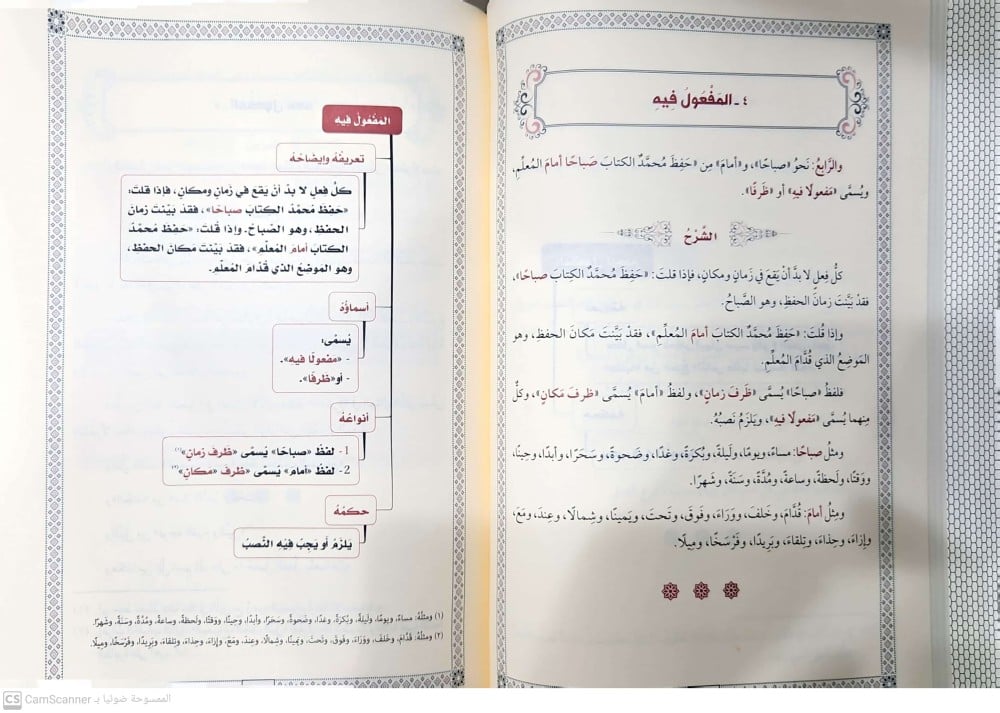 ٤ ـ المَفْعُولُ فيهِ
والرَّابِعُ: نَحوُ «صباحًا»، و«أمامَ» مِن «حَفِظَ مُحمَّدٌ الكتابَ صَباحًا أمامَ المُعلِّمِ،
ويُسمَّى «مَفعولًا فيهِ» أو «ظَرفًا».
الشَّرْحُ
كلُّ فِعلٍ لا بدَّ أنْ يَقعَ في زَمانٍ ومكانٍ، فإذا قلتَ: «حَفِظَ مُحمَّدٌ الكِتابَ صباحًا»،
فقدْ بَيَّنْتَ زمانَ الحفظِ، وهو الصَّباحُ.
وإذا قُلتَ: «حَفِظَ مُحمَّدٌ الكتابَ أمامَ المُعلِّمِ»، فقدْ بَيَّنْتَ مَكانَ الحفظِ، وهو
المَوضِعُ الذي قُدَّامَ المُعلِّمِ.
فلفظُ «صباحًا» يُسمَّى «ظَرفَ زمانٍ»، ولفظُ «أمامَ» يُسمَّى «ظرفَ مَكانٍ»، وكلٌّ
مِنهما يُسمَّى «مَفعولًا فيهِ»، ويَلزَمُ نَصبُهُ.
ومثلُ صباحًا: مساءً، ويومًا، وليلةً، وبُكرَةً، وغدًا، وضَحوةً، وسَحَرًا، وأبدًا، وحِينًا،
ووَقتًا، ولَحظةً، وساعةً، ومُدَّةً، وسَنَةً، وشَهرًا.
ومِثلُ أمامَ: قُدَّامَ، وخَلفَ، ووَرَاءَ، وفَوقَ، وتَحتَ، ويَمينًا، وشِمالًا، وعِندَ، ومَعَ،
وإزاءَ، وحِذاءَ، وتِلقاءَ، وبَرِيدًا، وفَرْسَخًا، ومِيلًا.
المَفْعُولُ فيه
تعريفُهُ وإيضاحُهُ
كلُّ فعلٍ لا بدَّ أنْ يقعَ في زمانٍ ومكانٍ، فإذا قلتَ:
«حَفِظَ مُحمَّدٌ الكِتابَ صباحًا»، فقدْ بَيَّنْتَ زمانَ
الحفظِ، وهو الصَّباحُ. وإذا قُلتَ: «حَفِظَ مُحمَّدٌ
الكتابَ أمامَ المُعلِّمِ»، فقدْ بَيَّنْتَ مكانَ الحفظِ،
وهو الموضعُ الذي قُدَّامَ المُعلِّمِ.
أسماؤُهُ
يُسمَّى:
- «مفعولًا فيه».
- أو«ظرفًا».
أنواعُهُ
1- لفظُ «صباحًا» يُسمَّى «ظَرفَ زمانٍ»(١)
2- لفظُ «أمامَ» يُسمَّى «ظرفَ مكانٍ»(٢)
حكمُهُ
يَلزَمُ أو يَجِبُ فيْهِ النَّصبُ
(١) ومثلُهُ: مساءً، ويومًا، وليلةً، وبُكرَةً، وغدًا، وضَحوةً، وسَحَرًا، وأبدًا، وحِينًا، ووَقتًا، ولَحظةً، وساعةً، ومُدَّةً، وسَنَةً، وشَهرًا.
(٢) ومثلُهُ: قُدَّامَ، وخَلفَ، ووَرَاءَ، وفَوقَ، وتَحتَ، ويَمينًا، وشِمالًا، وعِندَ، ومَعَ، وإزاءَ، وحِذاءَ، وتِلقاءَ، وبَرِيدًا، وفَرْسَخًا، ومِيلًا.
CS CamScanner الممسوحة ضوئيا بـ